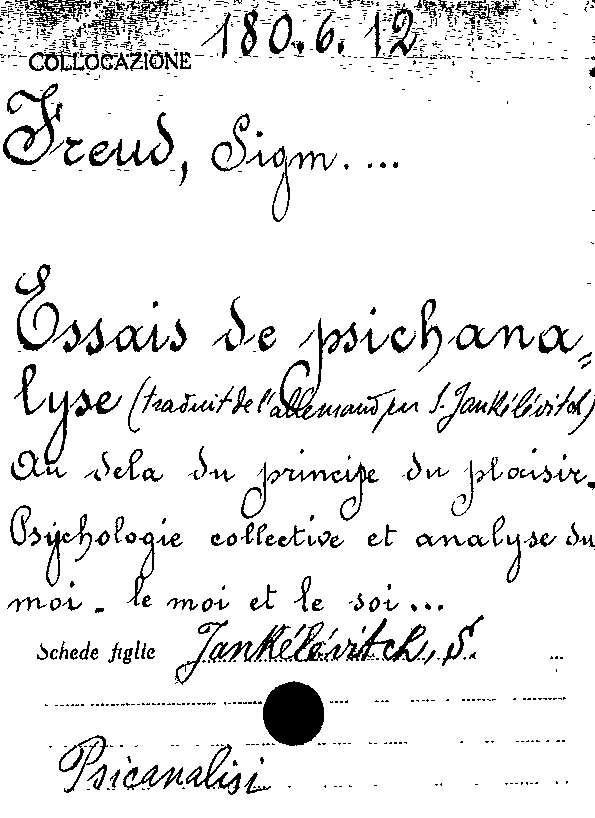 COLLOCAZIONE 180.6.12
Freud, Sigm. ...
Essais de psichana=
lyse (traduit de l'allemand par S. Jankélévitch)
Au dela du principe du plaisir.
Psychologie collective et analyse du
moi - le moi et le soi...
Schede figlie Jankélévitch, S. ...
Psicanalisi